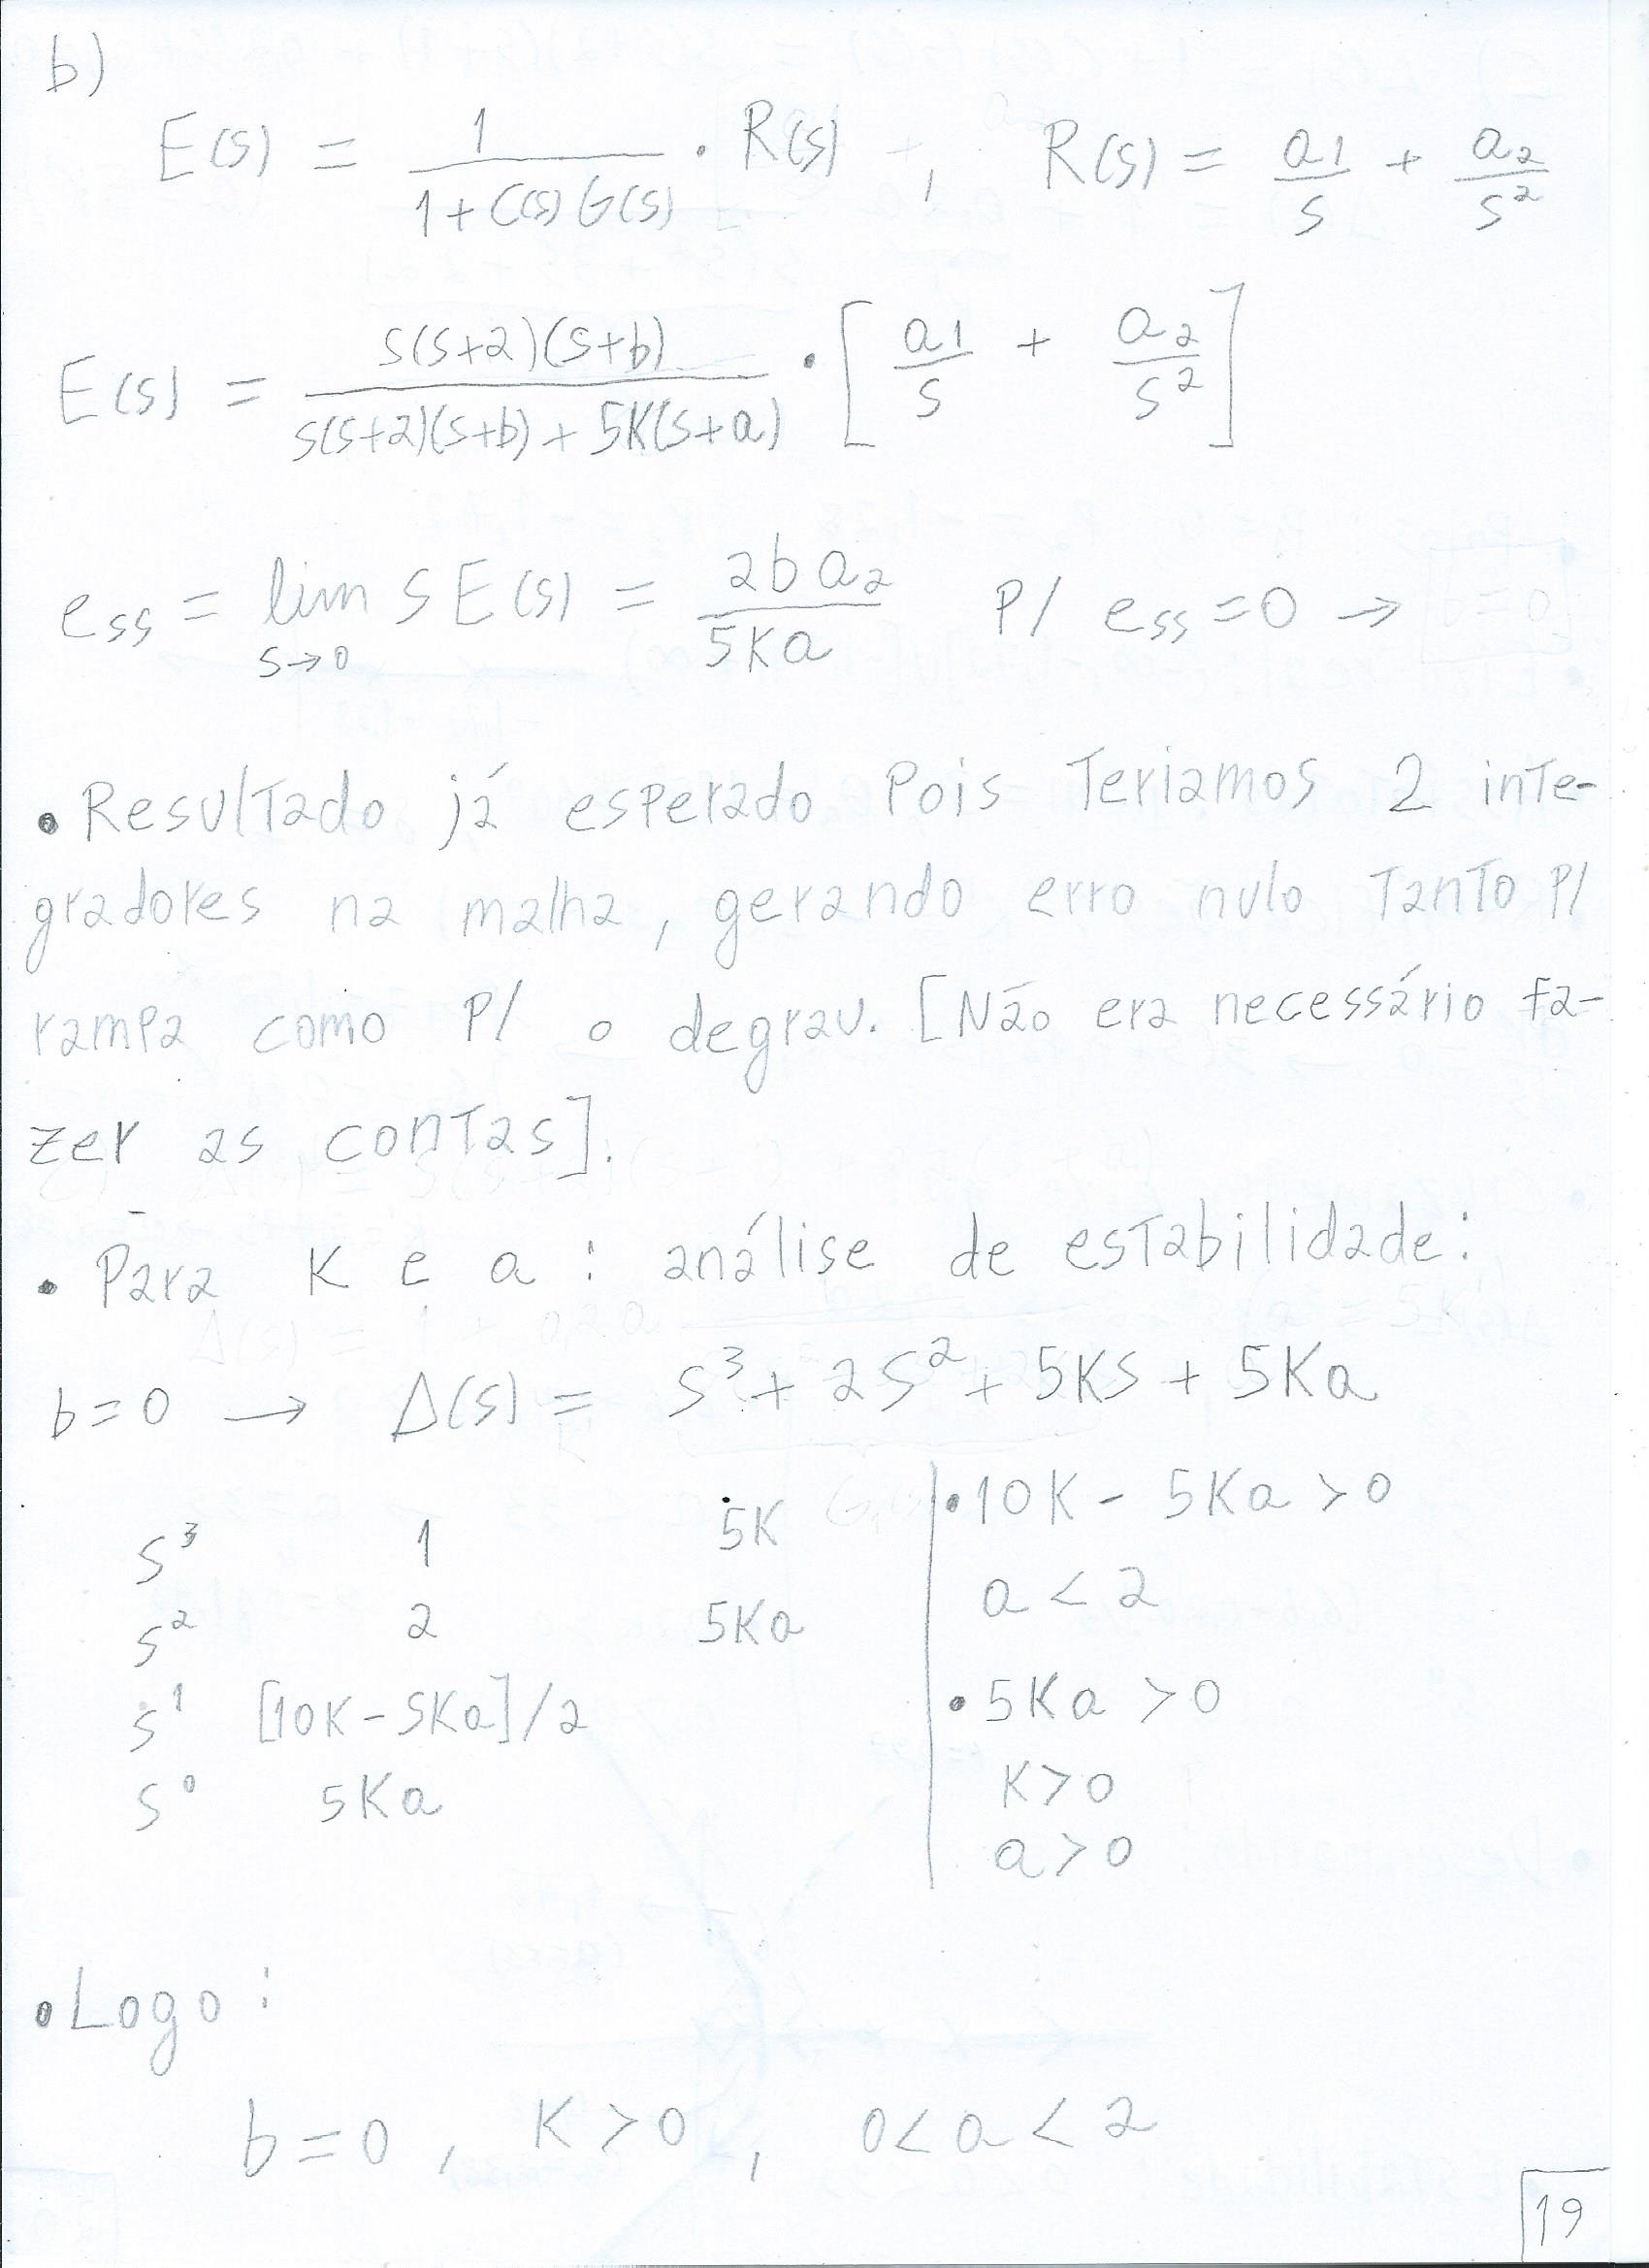 b)
E(s) = 1 / (1 + C(s) G(s)) · R(s) , R(s) = a1/s + a2/s²
E(s) = s(s+2)(s+b) / (s(s+2)(s+b) + 5K(s+a)) · [a1/s + a2/s²]
ess = lim s→0 S E(s) = 2b a2 / 5Ka P/ ess = 0 →
• Resultado já esperado Pois Teriamos 2 inte-
gradores na malha, gerando erro nulo Tanto P/
rampa como P/ o degrau. [Não era necessário fa-
zer as contas].
• Para K e a : análise de estabilidade:
b=0 → Δ(s) = s³ + 2s² + 5Ks + 5Ka
s³ 1 5K
s² 2 5Ka
s¹ [10K - 5Ka]/2
s⁰ 5Ka
• 10K - 5Ka > 0
a < 2
• 5Ka > 0
K > 0
a > 0
• Logo :
b = 0 , K > 0 , 0 < a < 2
19